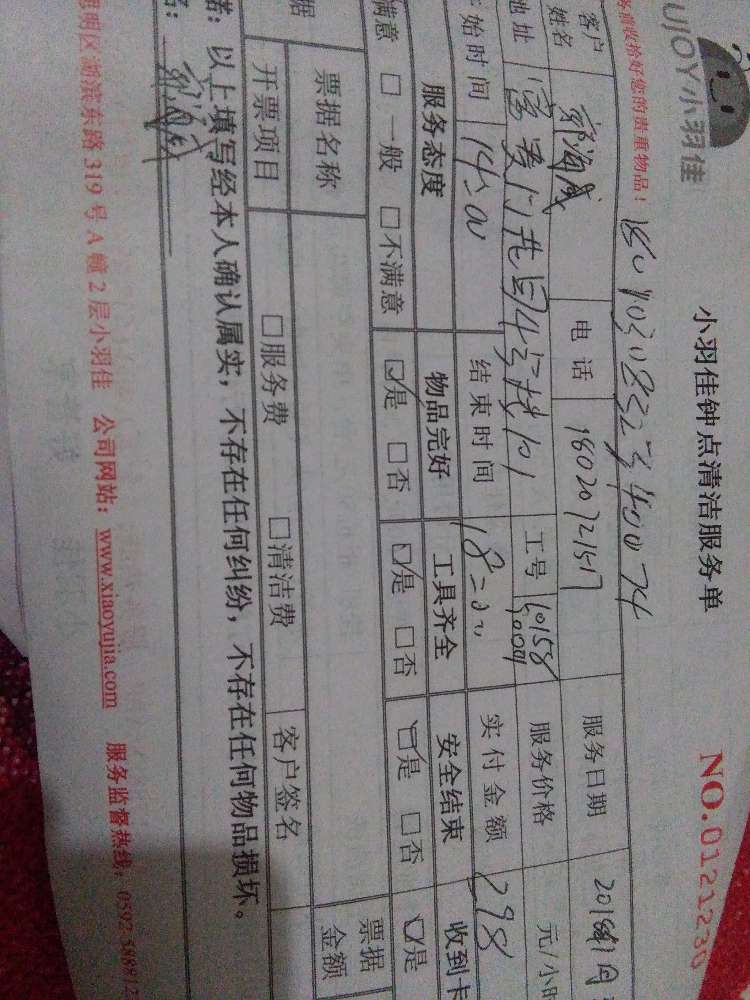 UJOY小羽佳
小羽佳钟点清洁服务单
NO.0121230
务前收拾好您的贵重物品！
客户
姓名
电话
18020721517
服务日期
地址
工号
服务价格
元/小时
始时间
14:00
结束时间
18:00
实付金额
298
服务态度
物品完好
工具齐全
安全结束
收到卡
满意 □一般 □不满意
☑是 □否
☑是 □否
☑是 □否
☑是
据
票据名称
票据
金额
开票项目
□服务费
□清洁费
客户签名
诺：以上填写经本人确认属实，不存在任何纠纷，不存在任何物品损坏。
名：
思明区湖滨东路319号A幢2层小羽佳 公司网站：www.xiaoyujia.com 服务监督热线：0592-588812